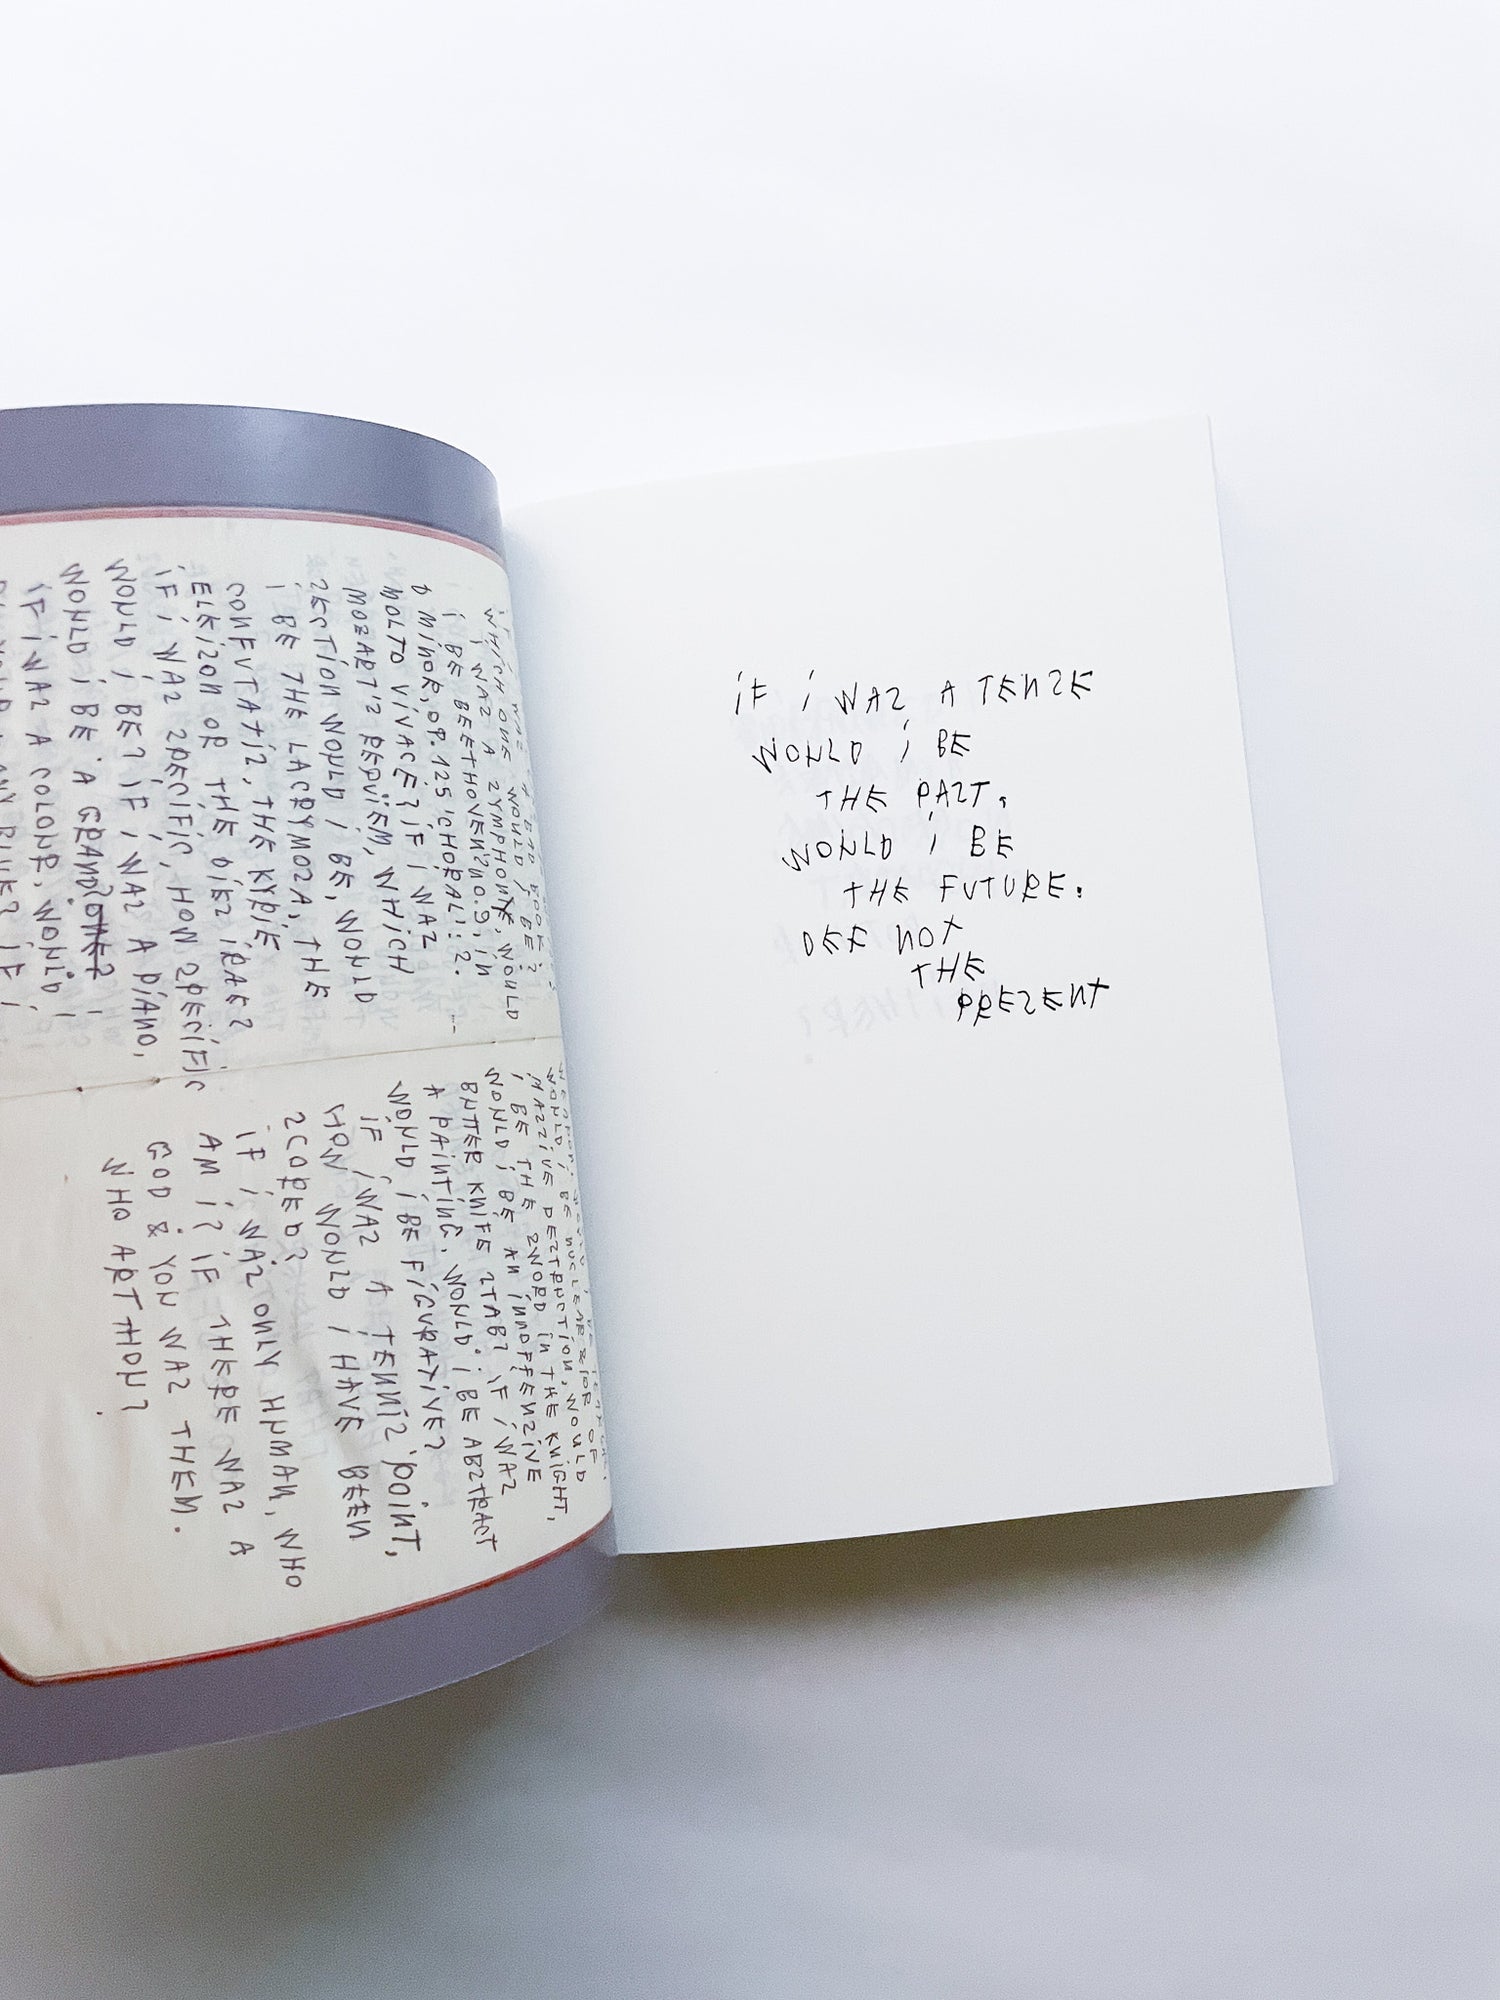 WHICH ONE WOULD I BE?
I WAS A SYMPHONY, WOULD
I BE BEETHOVEN'S NO.9, IN
D MINOR, OP.125 'CHORAL': 2.
MOLTO VIVACE? IF I WAS
MOZART'S REQUÏEM, WHICH
SECTION WOULD I BE, WOULD
I BE THE LACRYMOSA, THE
CONFUTATIS, THE KYRIE
ELEISON OR THE DIES IRAE?
IF I WAS SPECIFIC, HOW SPECIFIC
WOULD I BE? IF I WAS A PIANO,
WOULD I BE A GRAND
IF I WAS A COLOUR, WOULD I
WOULD I BE NUCLEAR OR OF
MASSIVE DESTRUCTION, WOULD
I BE THE SWORD IN THE KNIGHT,
WOULD I BE AN INOFFENSIVE
BUTTER KNIFE STAB? IF I WAS
A PAINTING, WOULD I BE ABSTRACT
WOULD I BE FIGURATIVE?
IF I WAS A TENNIS POINT,
HOW WOULD I HAVE BEEN
SCORED?
IF I WAS ONLY HUMAN, WHO
AM I? IF THERE WAS A
GOD & YOU WAS THEM.
WHO ART THOU?
IF I WAS A TENSE
WOULD I BE
THE PAST,
WOULD I BE
THE FUTURE.
DEF NOT
THE
PRESENT